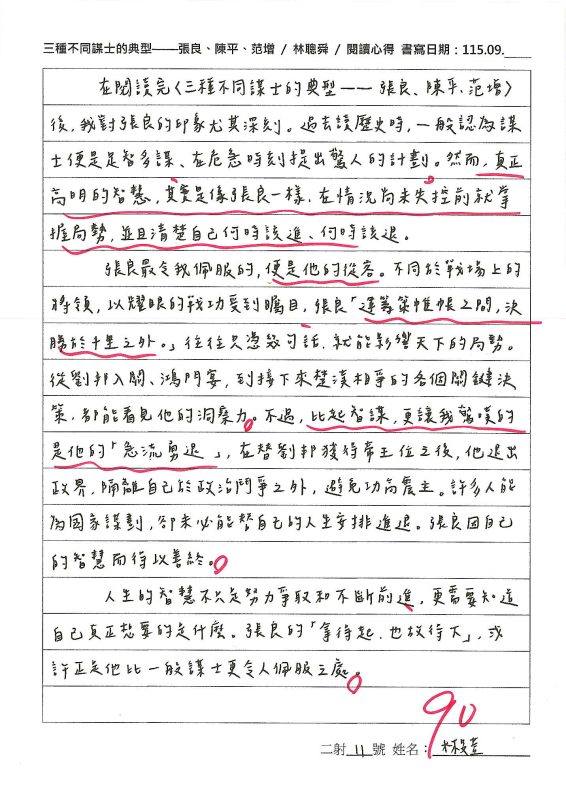 三種不同謀士的典型──張良、陳平、范增 / 林聰舜 / 閱讀心得 書寫日期：115.09.____
在閱讀完〈三種不同謀士的典型——張良、陳平、范增〉
後，我對張良的印象尤其深刻。過去讀歷史時，一般認為謀
士便是足智多謀、在危急時刻提出驚人的計劃。然而，真正
高明的智慧，其實是像張良一樣，在情況尚未失控前就掌
握局勢，並且清楚自己何時該進、何時該退。
張良最令我佩服的，便是他的從容。不同於戰場上的
將領，以耀眼的戰功受到矚目，張良「運籌策帷帳之間，決
勝於千里之外。」往往只憑幾句話，就能影響天下的局勢。
從劉邦入關、鴻門宴，到接下來楚漢相爭的各個關鍵決
策，都能看見他的洞察力。不過，比起智謀，更讓我驚嘆的
是他的「急流勇退」，在替劉邦獲得帝王位之後，他退出
政界，隔離自己於政治鬥爭之外，避免功高震主。許多人能
為國家謀劃，卻未必能替自己的人生安排進退。張良因自己
的智慧而得以善終。
人生的智慧不只是努力爭取和不斷前進，更需要知道
自己真正想要的是什麼。張良的「拿得起，也放得下」，或
許正是他比一般謀士更令人佩服之處。
90
二射 11 號 姓名：林